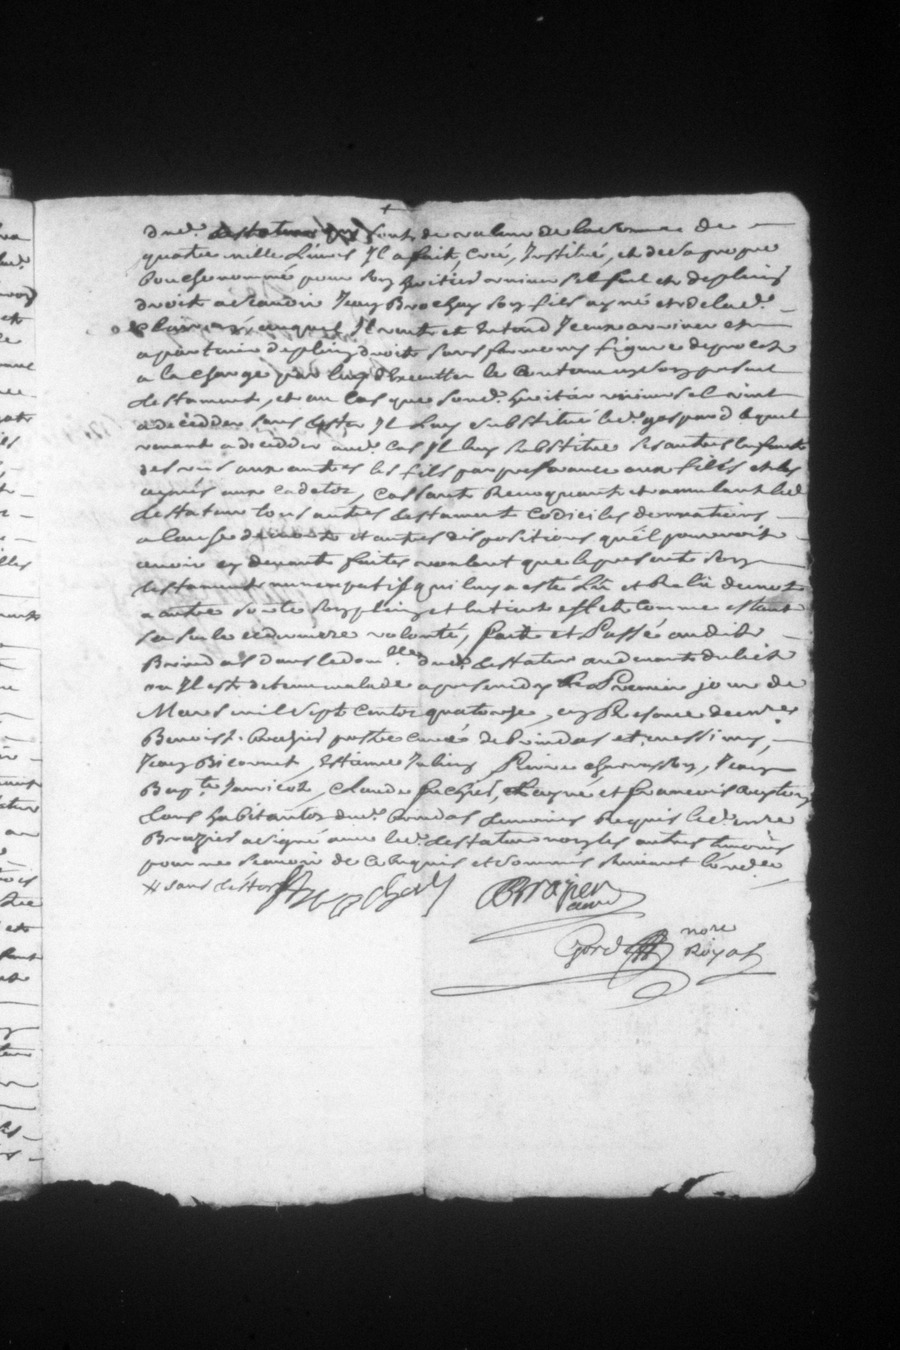 dud. testateur sont de valeur de la somme de
quatre mille Livres Il a fait, créé, Institué, et de sa propre
bouche nommé pour son heritier universel seul et de plein
droit a scavoir Jean Brochay son fils ayné et de lad.
auquel Il veut et Entend Iceux arriver et
apartenir de plein droit sans forme ny figure de procest
a la charge par luy d'Executter le Contenu en son present
testament, et au Cas que sond. heritier universel vint
a décédder sans tester Il luy substitué led. gaspard lequel
venant a décédder aud. cas Il luy substitue ses autres Enfants
des uns aux autres les fils par preferance aux filles et les
aynés aux cadetz, Cassant Revoquant et annulant led.
testateur tous autres testament Codiciles donnations
a Cause de mort et autres dispositions qu'él pourroit
avoir cy devant faites voulant que le present son
testament nuncupatif qui luy a esté Lû et Relû de mot
a autre sorte son plein et Entier effect comme estant
sa seule et derniere volonté, fait et Passé audit
Brindas dans le dom.lle dud. testateur au devant du lict
ou Il est detenu malade apres midy Le Premier jour de
Mars mil sept centz quatorze, en Presence de mre
Benoist Brazier prestre curé de brindas et messimy,
Jean Bicornet, Estienne Pierre Jean
Bapte. Claude et francois
tous habitantz dud. brindas temoins Requis led. mre
Brazier a signé avec led. testateur non les autres temoins
pour ne scavoir de ce Requis et sommés
sans
J Brochay Brazier
curé
nore
Royal